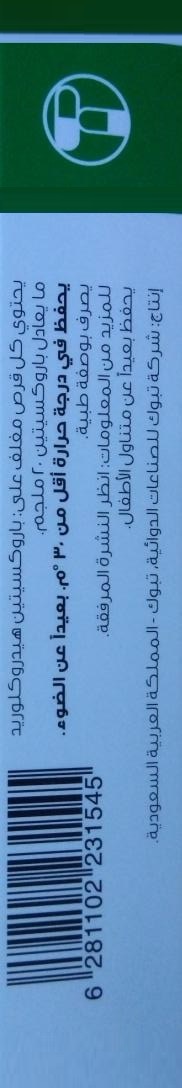 يحتوي كل قرص مغلف على: باروكسيتين هيدروكلوريد
ما يعادل باروكستيتين ٢٠ ملجم.
يحفظ في درجة حرارة أقل من ٣٠ °م، بعيداً عن الضوء.
يصرف بوصفة طبية.
للمزيد من المعلومات: انظر النشرة المرفقة.
يحفظ بعيداً عن متناول الأطفال.
إنتاج: شركة تبوك للصناعات الدوائية، تبوك - المملكة العربية السعودية.
6 281102 231545